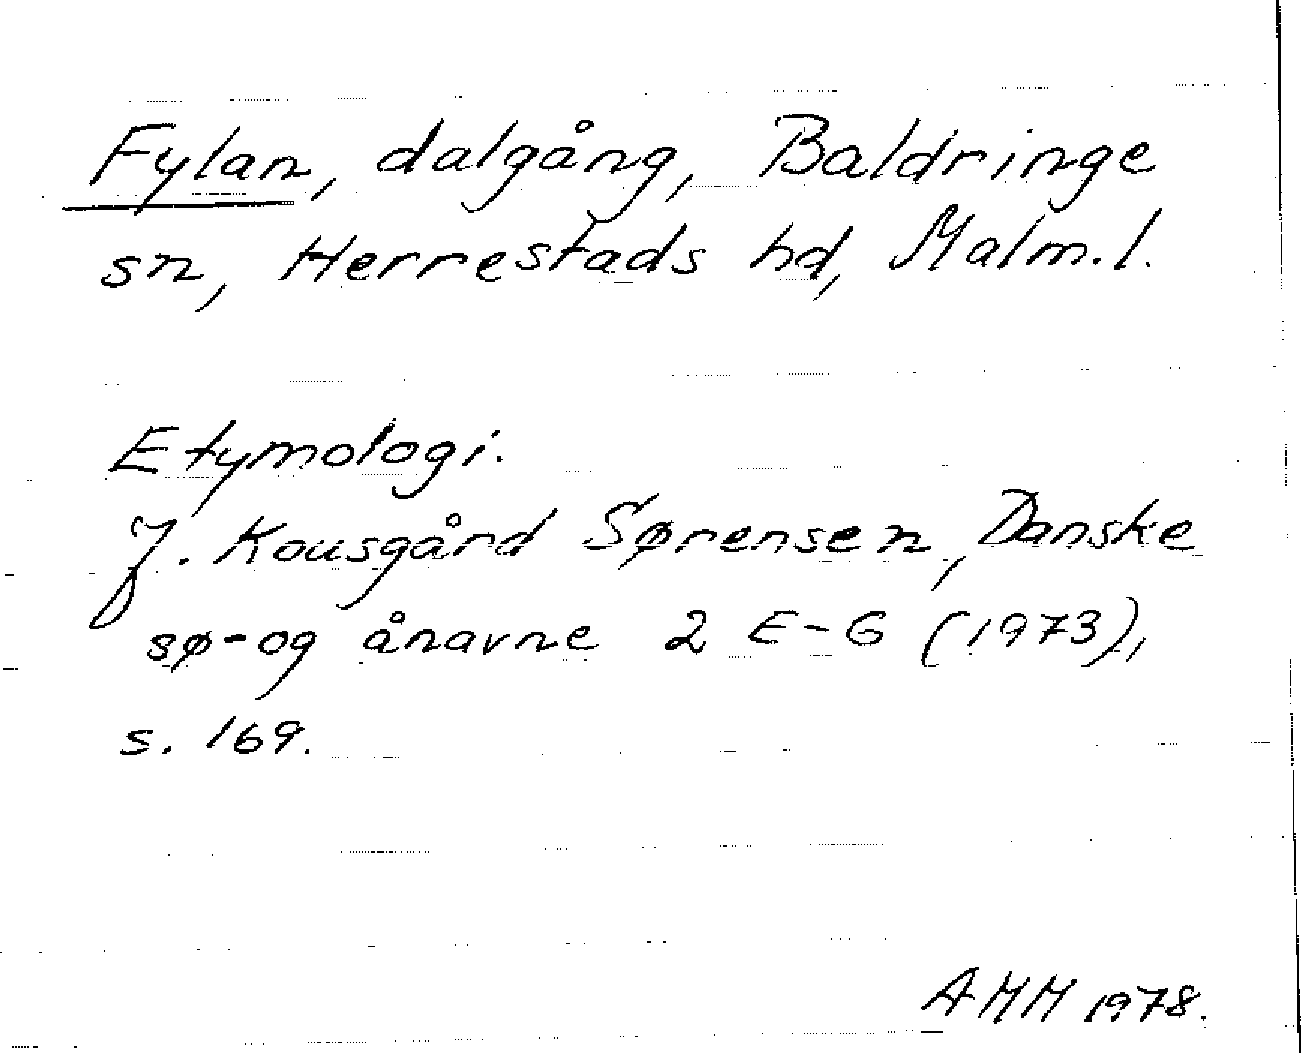 Fylan, dalgång, Baldringe
sn, Herrestads hd, Malm.l.
Etymologi.
J. Kousgård Sørensen, Danske
sø- og ånavne 2 E-G (1973),
s. 169.
AMM 1978.